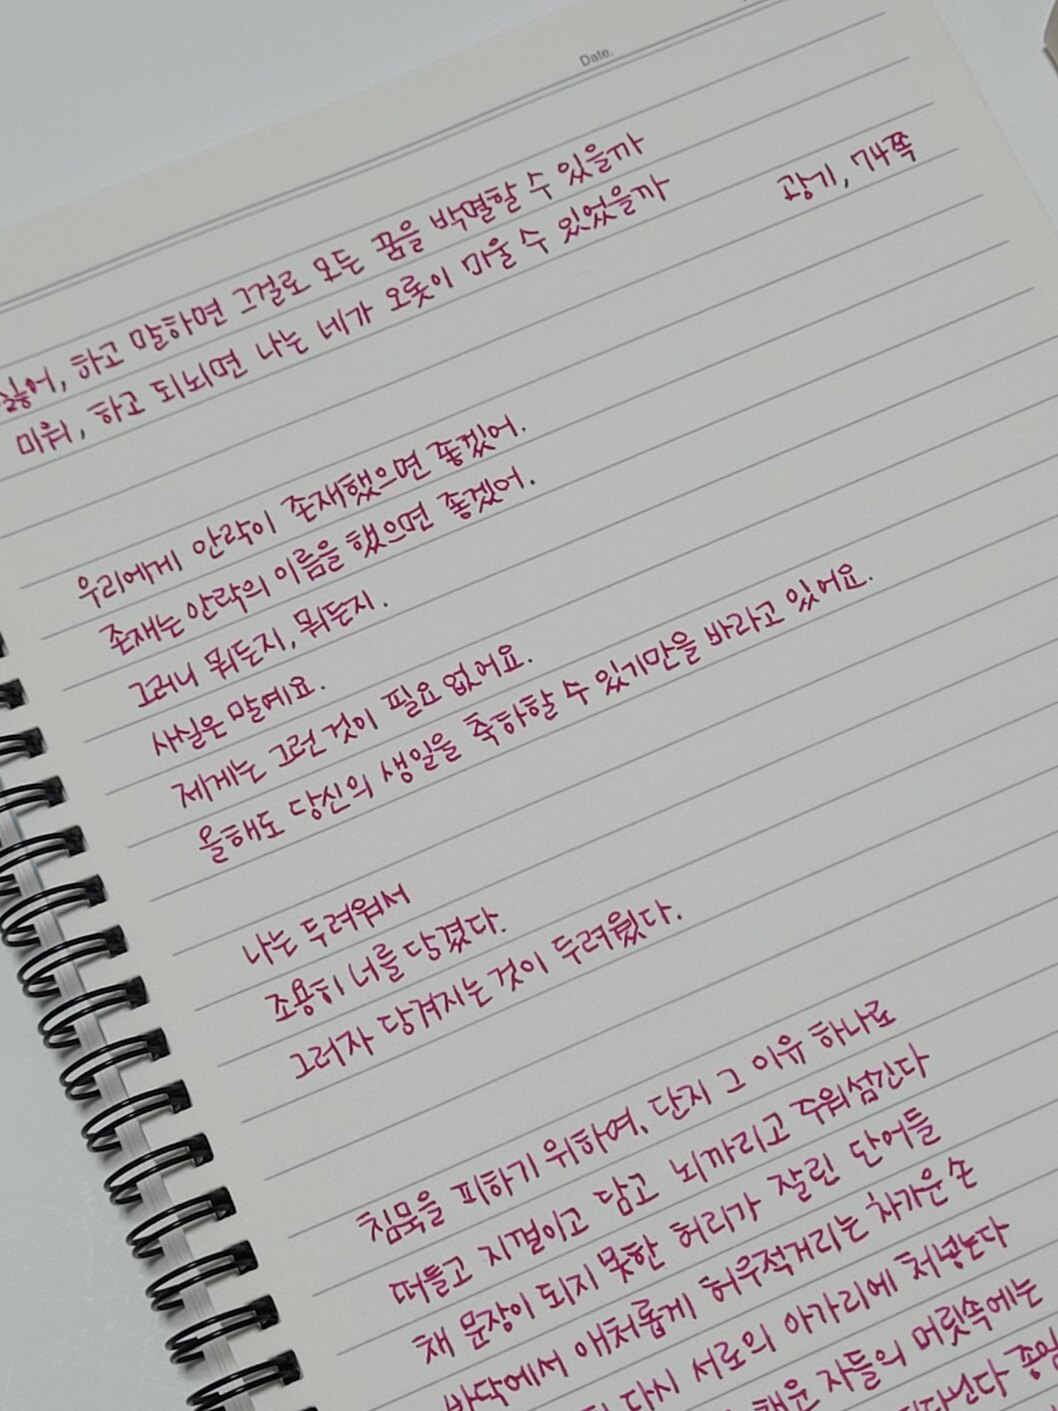 Date.
싫어, 하고 말하면 그걸로 모든 꿈을 박멸할 수 있을까
미워, 하고 되뇌면 나는 네가 오롯이 미울 수 있었을까
광기, 74쪽
우리에게 안락이 존재했으면 좋겠어.
존재는 안락의 이름을 했으면 좋겠어.
그러니 뭐든지, 뭐든지.
사실은 말예요.
제게는 그런 것이 필요 없어요.
올해도 당신의 생일을 축하할 수 있기만을 바라고 있어요.
나는 두려워서
조용히 너를 당겼다.
그러자 당겨지는 것이 두려웠다.
침묵을 피하기 위하여, 단지 그 이유 하나로
떠들고 지껄이고 담고 뇌까리고 주워섬긴다
채 문장이 되지 못한 허리가 잘린 단어들
바닥에서 애처롭게 허우적거리는 차가운 손
다시 서로의 아가리에 처넣는다
채운 자들의 머릿속에는